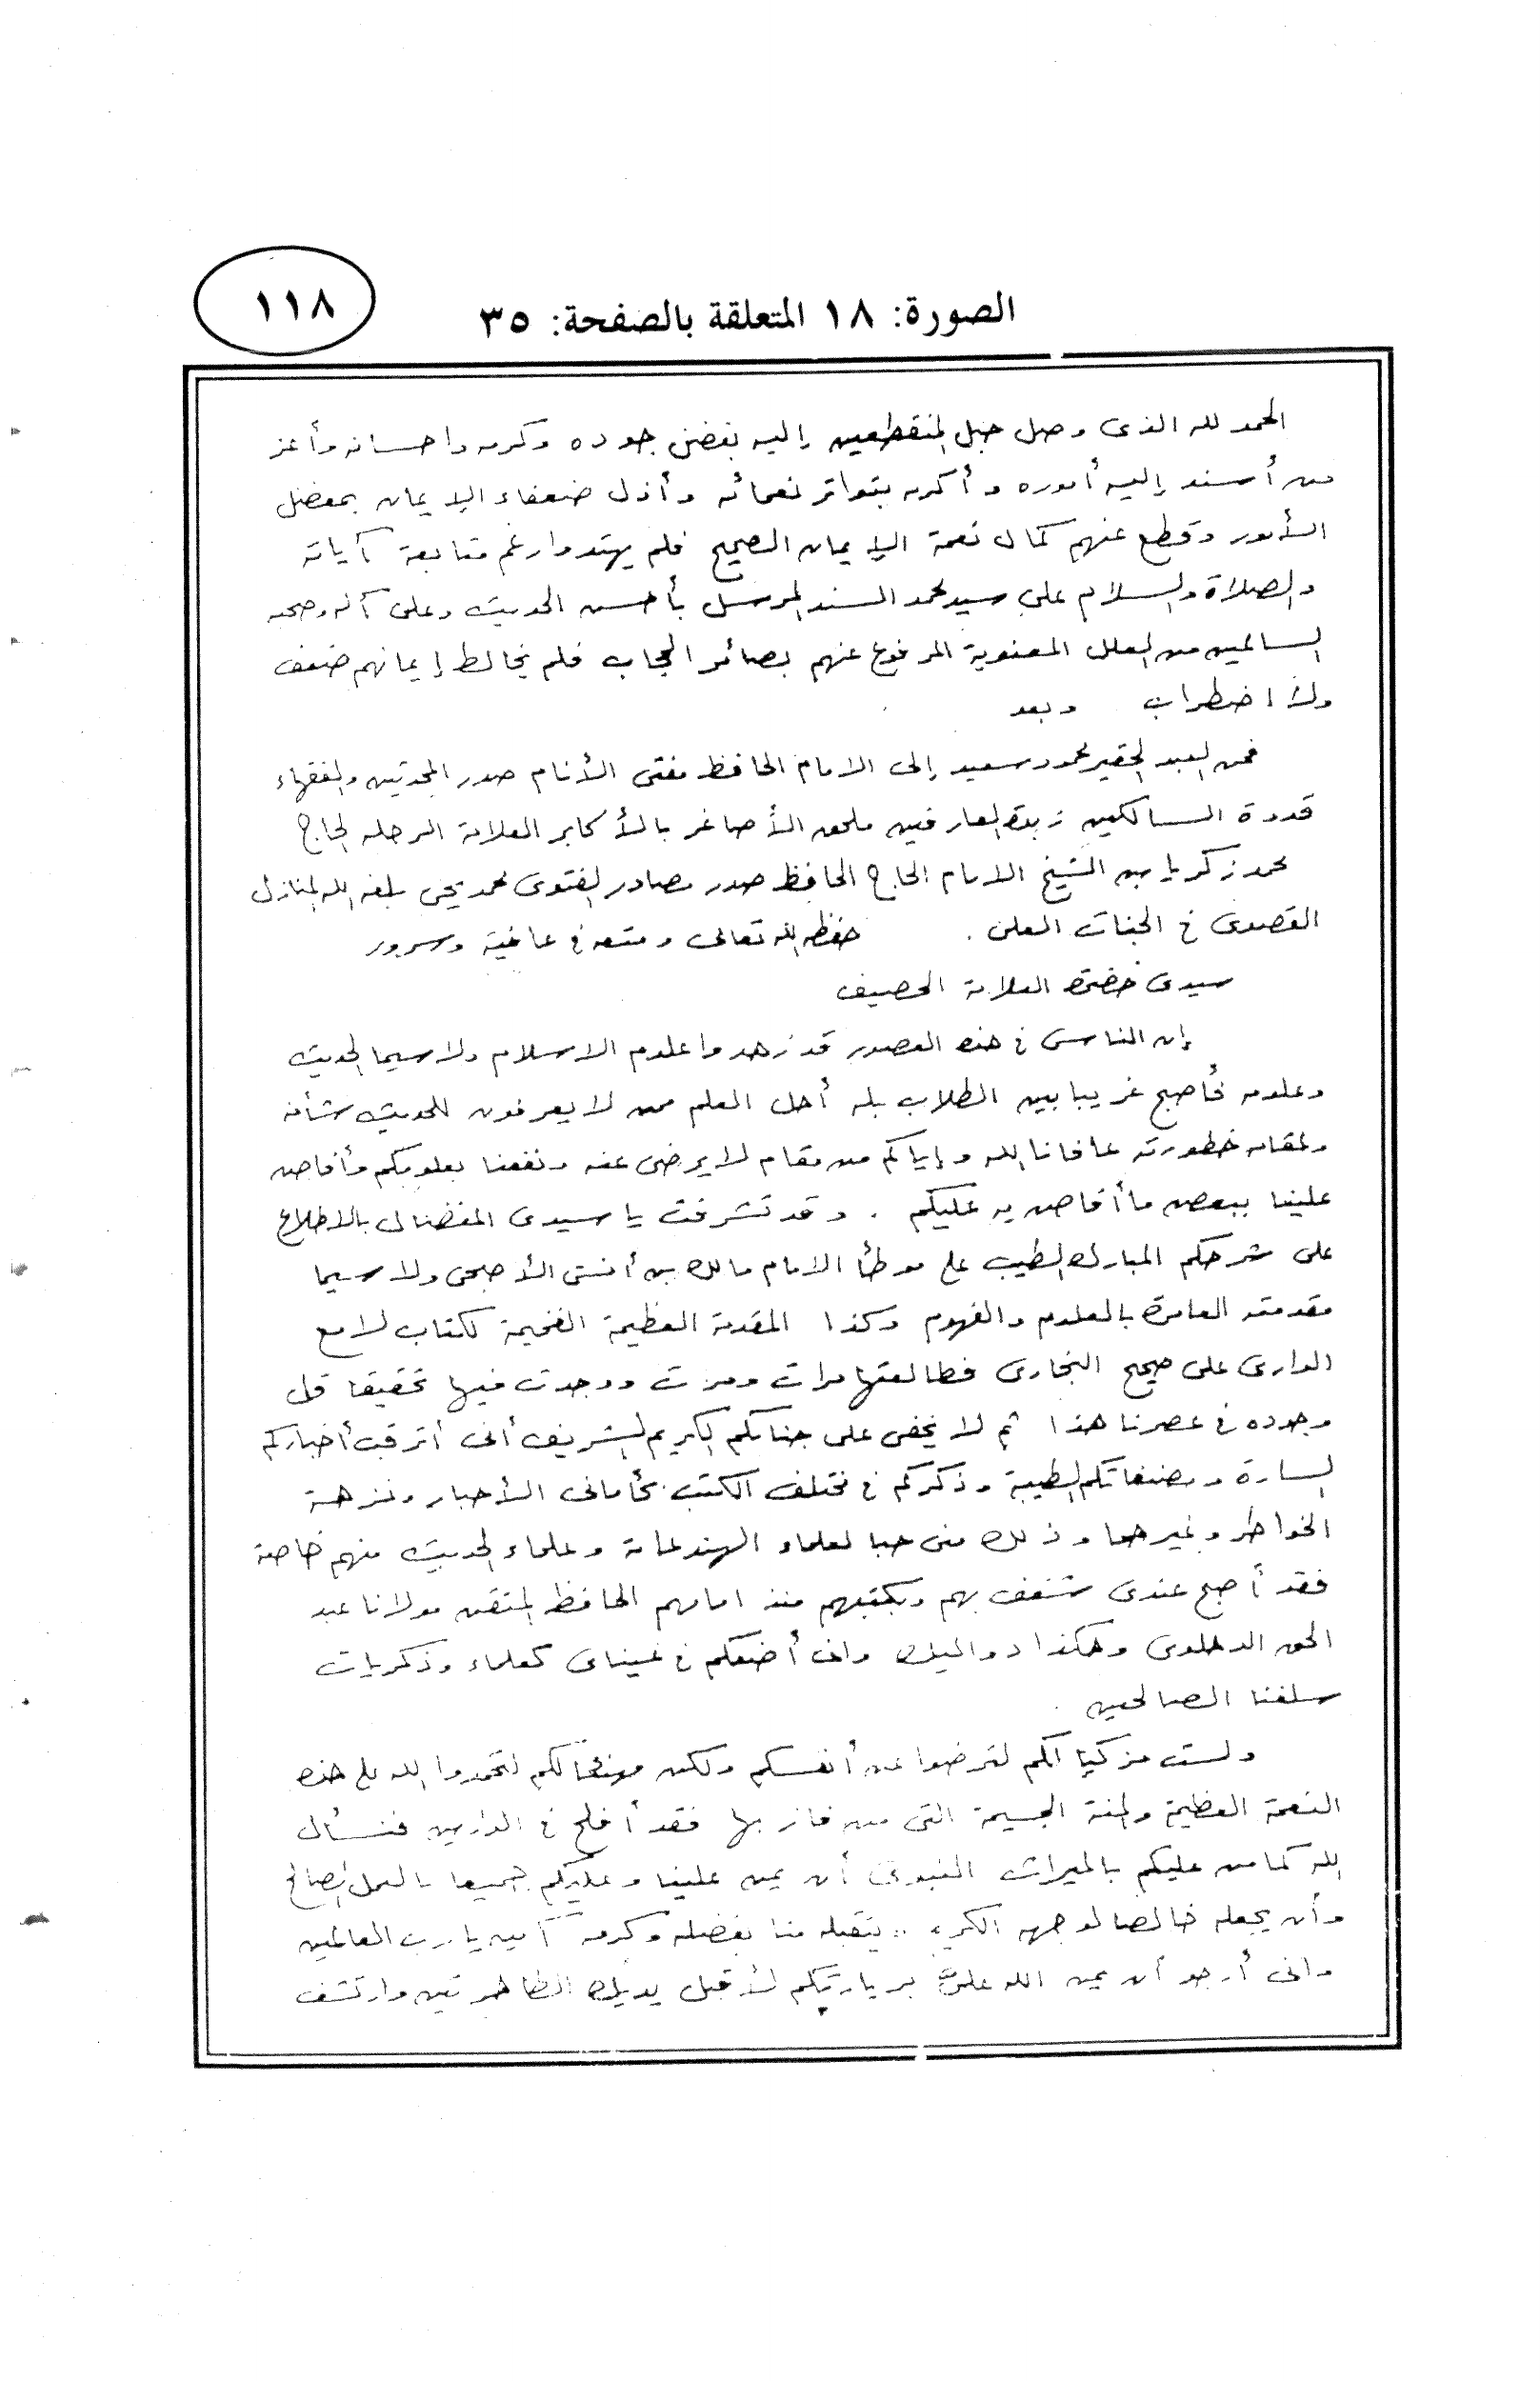 ١١٨
الصورة: ١٨ المتعلقة بالصفحة: ٣٥
الحمد لله الذى وصل حبل المنقطعين إليه بفضل جوده وكرمه واحسانه وأعز
من أسند إليه أموره وأكرمه بتواتر نعمائه وأذل ضعفاء الإيمان بمعضل
الأمور وقطع عنهم كمال نعمة الإيمان الصحيح فلم يهتدوا رغم متابعة آياته
والصلاة والسلام على سيد محمد السند المرسل بأحسن الحديث وعلى آله وصحبه
السالمين من العلل المعنوية المرفوع عنهم بصائر الحجاب فلم يخالط إيمانهم ضعف
ولا اضطراب وبعد
فمن العبد الحقير محمود سعيد إلى الامام الحافظ مفتى الأنام صدر المحدثين والفقهاء
قدوة السالكين زبدة العارفين ملحق الأصاغر بالأكابر العلامة الرحلة الحاج
محمد زكريا بن الشيخ الامام الحاج الحافظ صدر مصادر الفتوى محمد يحى بلغه الله المنازل
القصوى فى الجنات العلى . حفظه الله تعالى ومتعه فى عافية وسرور
سيدى فضيلة العلامة الحصيف
إن الناس فى هذه العصور قد زهدوا علوم الاسلام ولا سيما الحديث
وعلومه فأصبح غريبا بين الطلاب بله أهل العلم ممن لا يعرفون للحديث شأنه
ولمقامه خطورته عافانا الله وإياكم من مقام لا يرضى عنه ونفعنا بعلومكم وأفاض
علينا ببعض ما أفاض به عليكم . وقد تشرفت يا سيدى المفضال بالاطلاع
على شرحكم المبارك الطيب على موطأ الامام مالك بن أنس الأصبحى ولا سيما
مقدمته العامرة بالعلوم والفهوم وكذا المقدمة العظيمة الفخيمة لكتاب لامع
الدارى على صحيح البخارى فطالعتها مرات ومرات ووجدت فيها تحقيقا قل
وجوده فى عصرنا هذا ثم لا يخفى على جنابكم الكريم الشريف أنى أترقب أخباركم
السارة ومصنفاتكم الطيبة وذكركم فى مختلف الكتب كأمانى الأحبار ونزهة
الخواطر وغيرهما وذلك منى حبا لعلماء الهند عامة وعلماء الحديث منهم خاصة
فقد أصبح عندى شغف بهم وبكتبهم منذ امامهم الحافظ المتقن مولانا عبد
الحق الدهلوى وهكذا دواليك وانى أضعكم فى عيناى كعلماء وذكريات
سلفنا الصالحين .
ولست مزكيا لكم لترضوا عن أنفسكم ولكن مهنئا لكم لتحمدوا الله على هذه
النعمة العظيمة والمنة الجسيمة التى من فاز بها فقد أفلح فى الدارين فنسأل
الله كما من عليكم بالميراث النبوى أن يمن علينا وعليكم جميعا بالعمل الصالح
وأن يجعله خالصا لوجهه الكريم .. يتقبله منا بفضله وكرمه آمين يارب العالمين
وانى أرجو أن يمن الله علىّ بزيارتكم لأقبل يديك الطاهرتين وارتشف